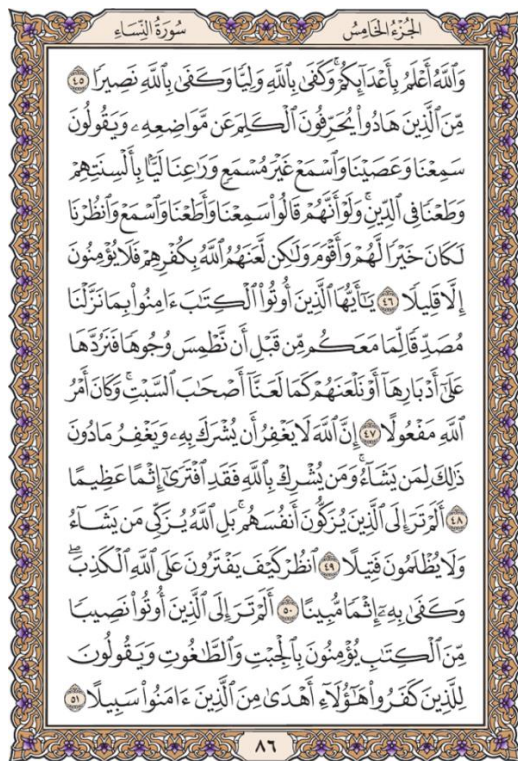 الجُزْءُ الخَامِسُ سُورَةُ النِّسَاءِ
وَٱللَّهُ أَعْلَمُ بِأَعْدَآئِكُمْۚ وَكَفَىٰ بِٱللَّهِ وَلِيًّا وَكَفَىٰ بِٱللَّهِ نَصِيرًا ٤٥
مِّنَ ٱلَّذِينَ هَادُوا۟ يُحَرِّفُونَ ٱلْكَلِمَ عَن مَّوَاضِعِهِۦ وَيَقُولُونَ
سَمِعْنَا وَعَصَيْنَا وَٱسْمَعْ غَيْرَ مُسْمَعٍ وَرَٰعِنَا لَيًّۢا بِأَلْسِنَتِهِمْ
وَطَعْنًا فِى ٱلدِّينِۚ وَلَوْ أَنَّهُمْ قَالُوا۟ سَمِعْنَا وَأَطَعْنَا وَٱسْمَعْ وَٱنظُرْنَا
لَكَانَ خَيْرًا لَّهُمْ وَأَقْوَمَ وَلَٰكِن لَّعَنَهُمُ ٱللَّهُ بِكُفْرِهِمْ فَلَا يُؤْمِنُونَ
إِلَّا قَلِيلًا ٤٦ يَٰٓأَيُّهَا ٱلَّذِينَ أُوتُوا۟ ٱلْكِتَٰبَ ءَامِنُوا۟ بِمَا نَزَّلْنَا
مُصَدِّقًا لِّمَا مَعَكُم مِّن قَبْلِ أَن نَّطْمِسَ وُجُوهًا فَنَرُدَّهَا
عَلَىٰٓ أَدْبَارِهَآ أَوْ نَلْعَنَهُمْ كَمَا لَعَنَّآ أَصْحَٰبَ ٱلسَّبْتِۚ وَكَانَ أَمْرُ
ٱللَّهِ مَفْعُولًا ٤٧ إِنَّ ٱللَّهَ لَا يَغْفِرُ أَن يُشْرَكَ بِهِۦ وَيَغْفِرُ مَا دُونَ
ذَٰلِكَ لِمَن يَشَآءُۚ وَمَن يُشْرِكْ بِٱللَّهِ فَقَدِ ٱفْتَرَىٰٓ إِثْمًا عَظِيمًا
٤٨ أَلَمْ تَرَ إِلَى ٱلَّذِينَ يُزَكُّونَ أَنفُسَهُمۚ بَلِ ٱللَّهُ يُزَكِّى مَن يَشَآءُ
وَلَا يُظْلَمُونَ فَتِيلًا ٤٩ ٱنظُرْ كَيْفَ يَفْتَرُونَ عَلَى ٱللَّهِ ٱلْكَذِبَۖ
وَكَفَىٰ بِهِۦٓ إِثْمًا مُّبِينًا ٥٠ أَلَمْ تَرَ إِلَى ٱلَّذِينَ أُوتُوا۟ نَصِيبًا
مِّنَ ٱلْكِتَٰبِ يُؤْمِنُونَ بِٱلْجِبْتِ وَٱلطَّٰغُوتِ وَيَقُولُونَ
لِلَّذِينَ كَفَرُوا۟ هَٰٓؤُلَآءِ أَهْدَىٰ مِنَ ٱلَّذِينَ ءَامَنُوا۟ سَبِيلًا ٥١
٨٦